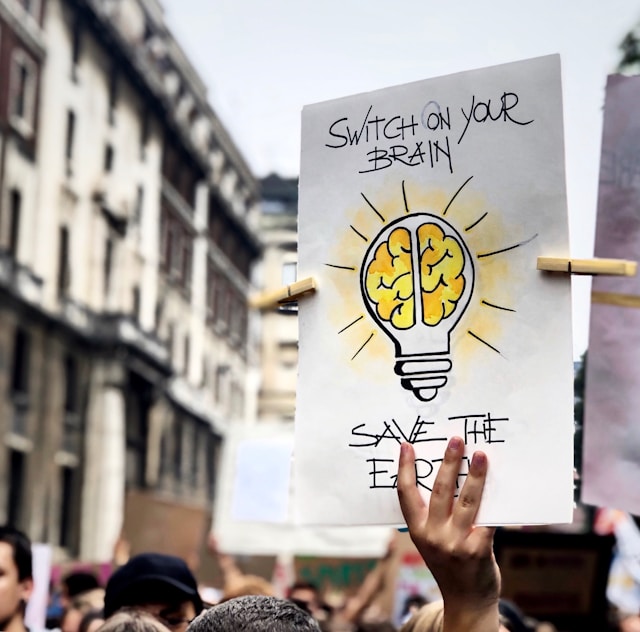 SWITCH ON YOUR
BRAIN
SAVE THE
EARTH